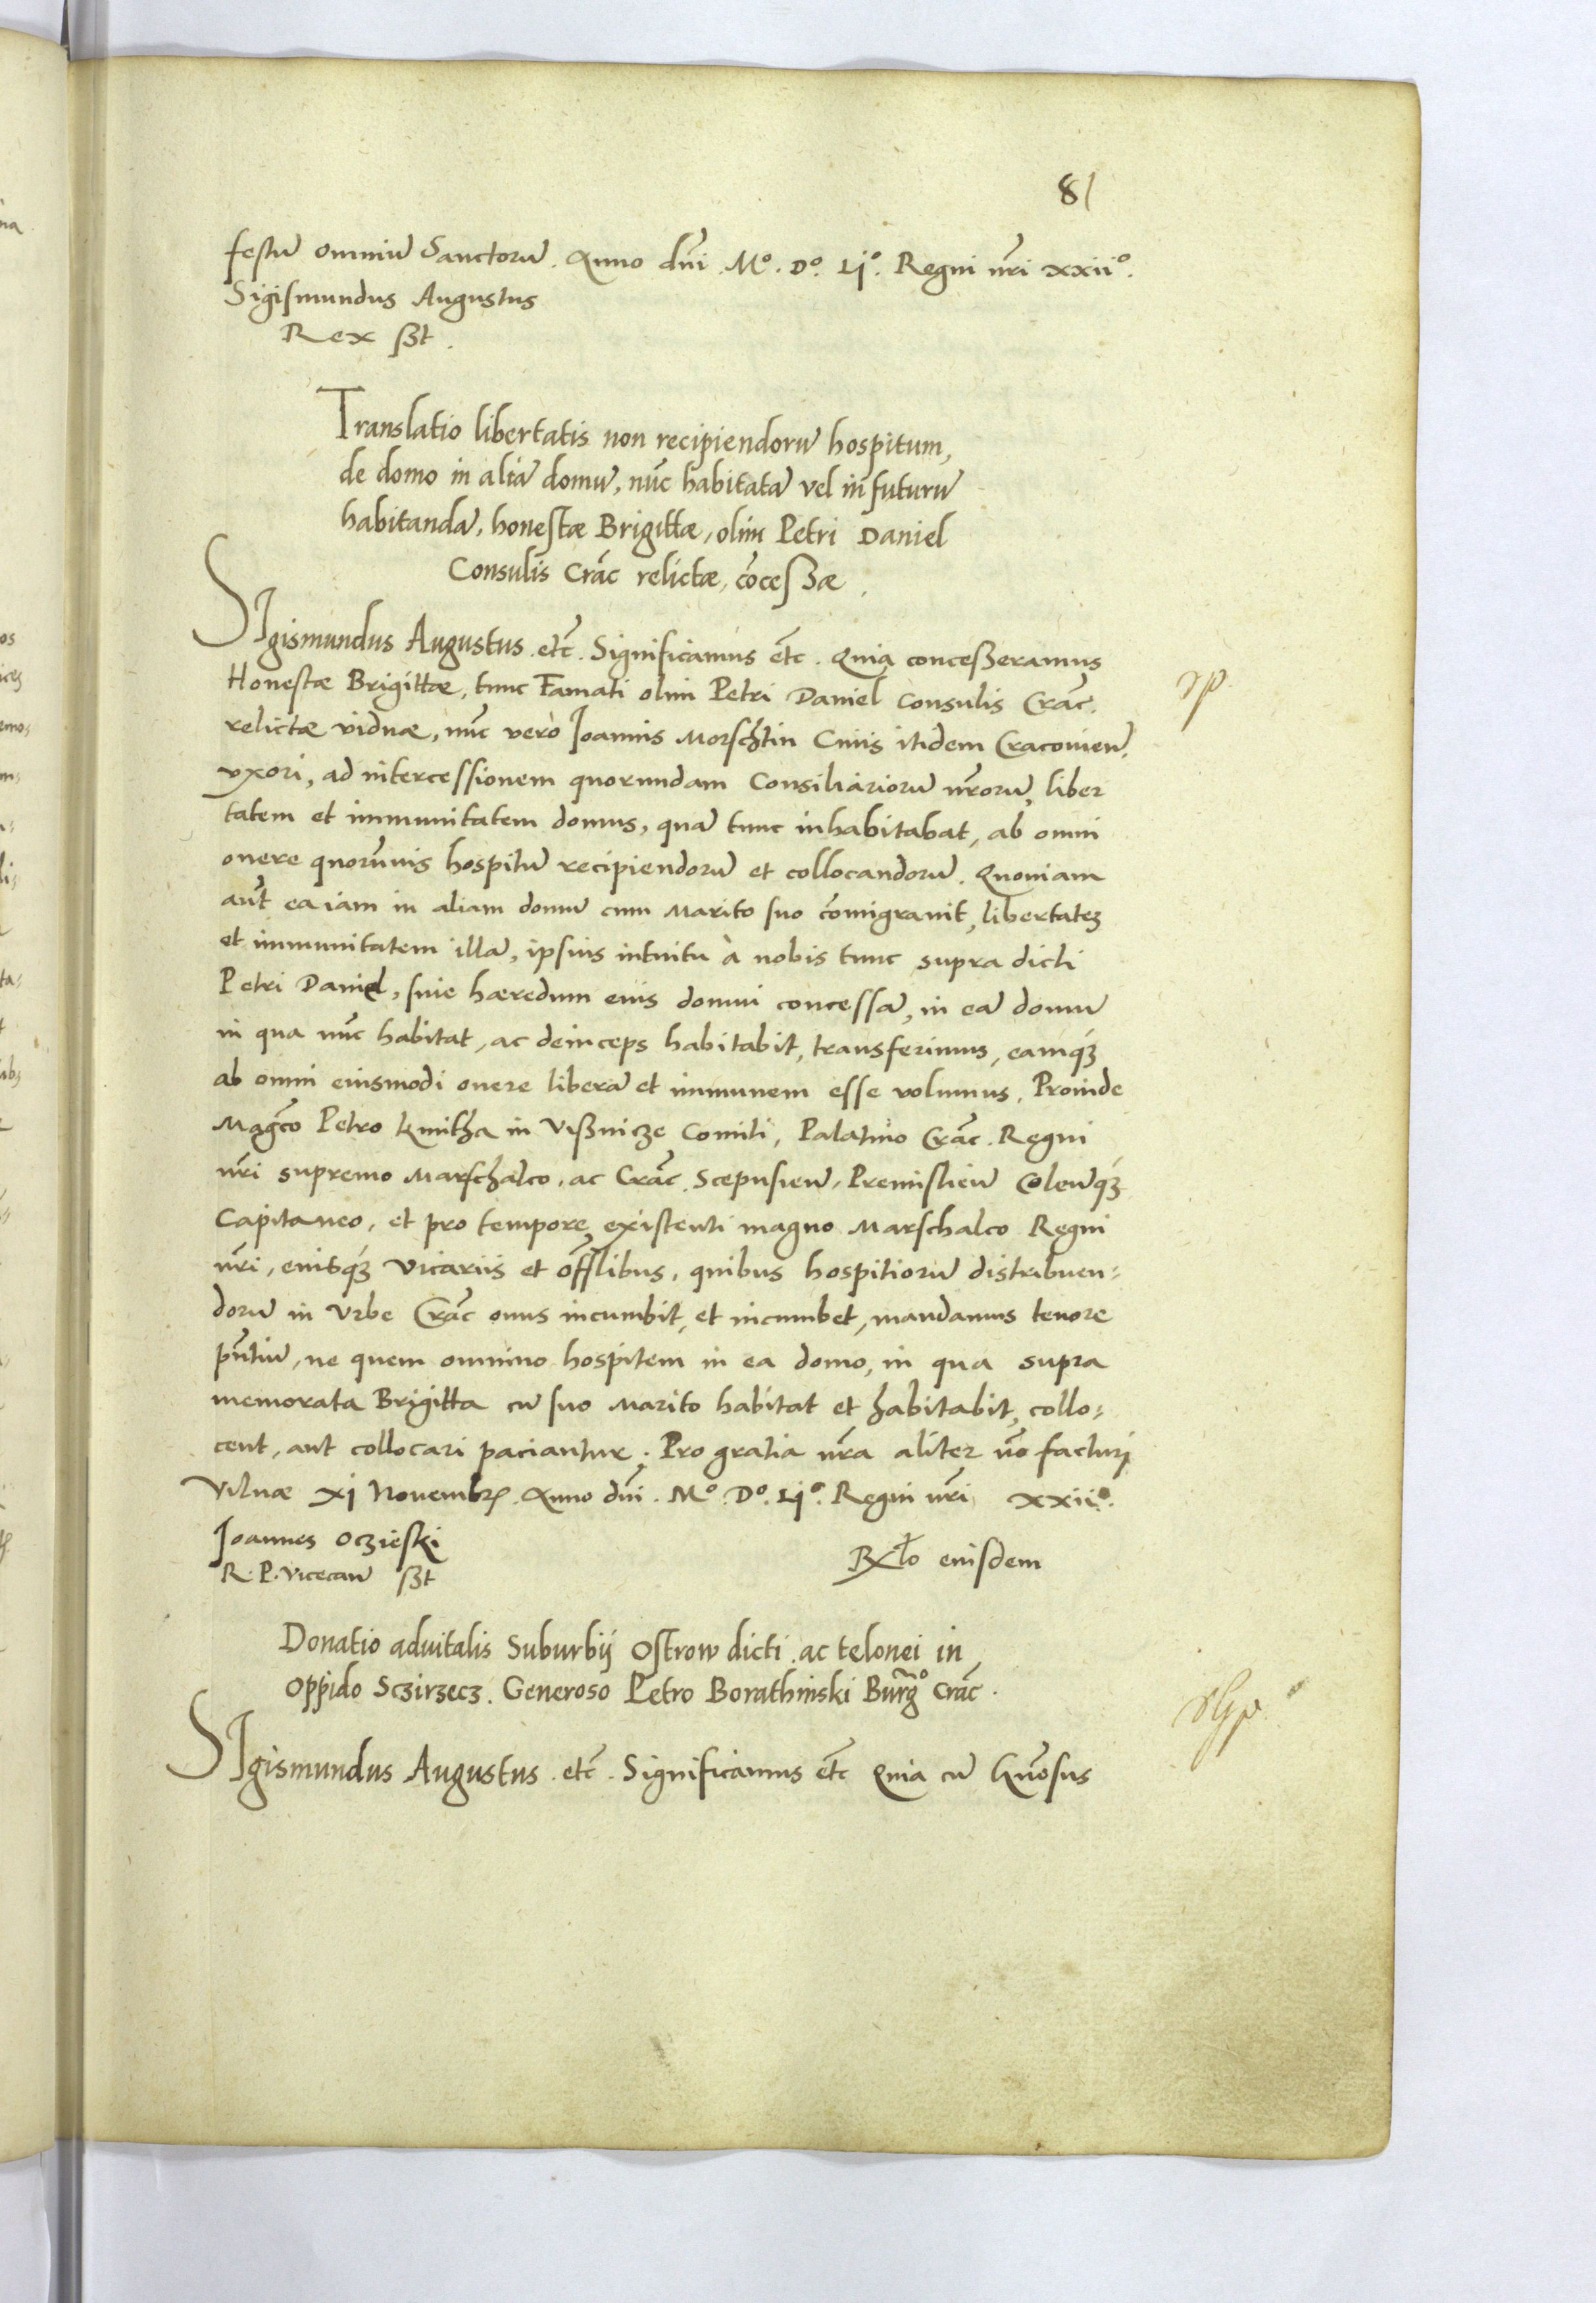 81
festū omniū Sanctorū. Anno dnī. Mº. Dº. Ljº. Regni nrī xxiiº.
Sigismundus Augustus
Rex sszt.
Translatio libertatis non recipiendorū hospitum,
de domo in aliā domū, nūc habitatā vel in futurū
habitandā, honestæ Brigittæ, olim Petri Daniel
Consulis Crāc relictæ, cōcessæ.
SIgismundus Augustus. etc̄. Significamus etc̄. Quia concesseramus
Honestæ Brigittæ, tunc Famati olim Petri Daniel Consulis Crāc.
relictæ viduæ, nūc vero Joannis Morschtin Ciuis itidem Cracouieñ.
vxori, ad intercessionem quorundam Consiliariorū nr̄orū, liber
tatem et immunitatem domus, quā tunc inhabitabat, ab omni
onere quorūuis hospitū recipiendorū et collocandorū. Quoniam
aūt ea iam in aliam domū cum Marito suo cōmigrauit, libertatēz
et immunitatem illā, ipsius intuitu à nobis tunc supra dicti
Petri Daniel, siue hæredum eius domui concessā, in eā domū
in qua nūc habitat, ac deinceps habitabit, transferimus, eamq́ꝫ
ab omni eiusmodi onere liberā et immunem esse volumus. Proinde
Magc̄o Petro Kmitha in Vissnicze Comiti, Palatino Crāc. Regni
nrī supremo Marschalco, ac Crāc. Scepusieñ, Premislieñ Coleñq́ꝫ
Capitaneo, et pro tempore existenti magno Marschalco Regni
nrī, eiusq́ꝫ Vicariis et offl̄ibus, quibus hospitiorū distribuen=
dorū in Vrbe Crāc onus incumbit, et incumbet, mandamus tenore
pn̄tiū, ne quem omnino hospitem in ea domo, in qua supra
memorata Brigitta cū suo Marito habitat et habitabit, collo=
cent, aut collocari paciantur. Pro gratia nr̄a aliter nō facturi
Vilnæ xj Nouembrꝭ. Anno dnī. Mº. Dº. Ljº. Regni nrī xxiiº.
Joannes Oczieski
R. P. Vicecañ sszt
Rl̄o eiusdem
Donatio aduitalis Suburbij Ostrow dicti ac telonei in
Oppido Sczirzecz. Generoso Petro Borathinski Burg̃º Crāc.
SIgismundus Augustus. etc̄. Significamus etc̄ Quia cū Gn̄osus